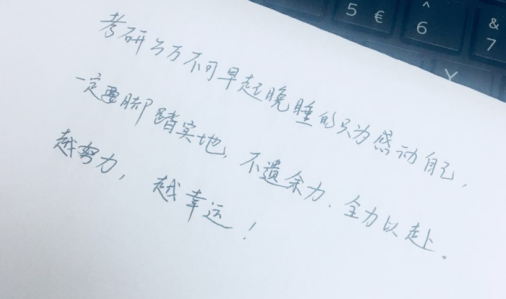 5 €
^ 6
& 7
Y
考研万万不可早起晚睡的只为感动自己，
一定要脚踏实地，不遗余力、全力以赴．
越努力，越幸运！